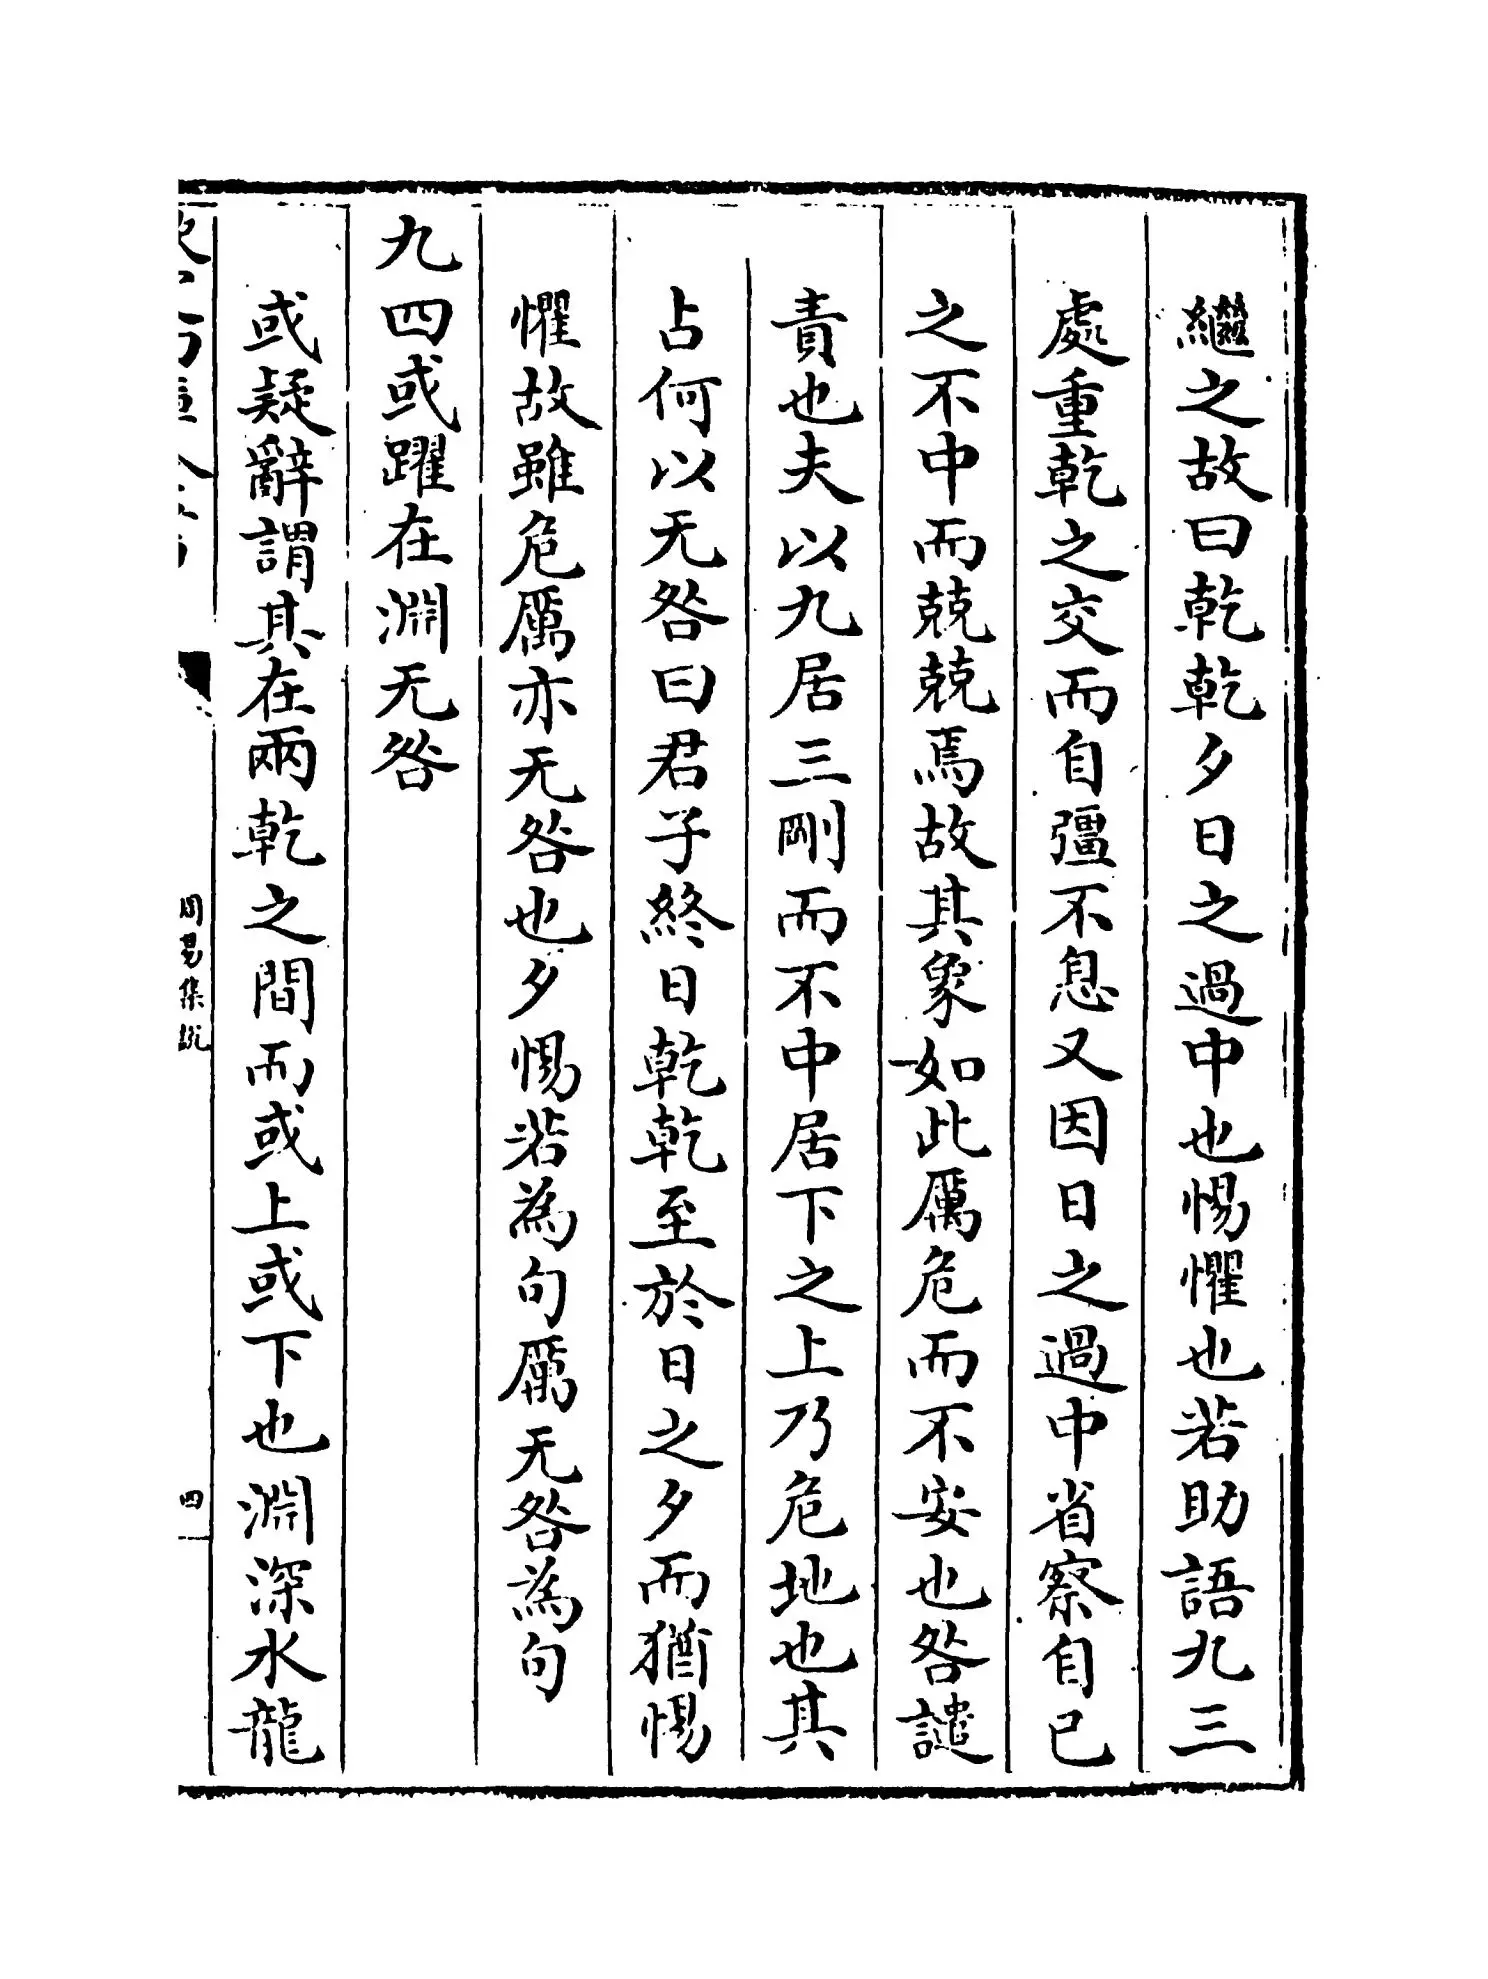 繼之故曰乾乾夕日之過中也惕懼也若助語九三
處重乾之交而自彊不息又因日之過中省察自己
之不中而兢兢焉故其象如此厲危而不安也咎譴
責也夫以九居三剛而不中居下之上乃危地也其
占何以无咎曰君子終日乾乾至於日之夕而猶惕
懼故雖危厲亦无咎也夕惕若為句厲无咎為句
九四或躍在淵无咎
或疑辭謂其在兩乾之間而或上或下也淵深水龍
周易集說
四